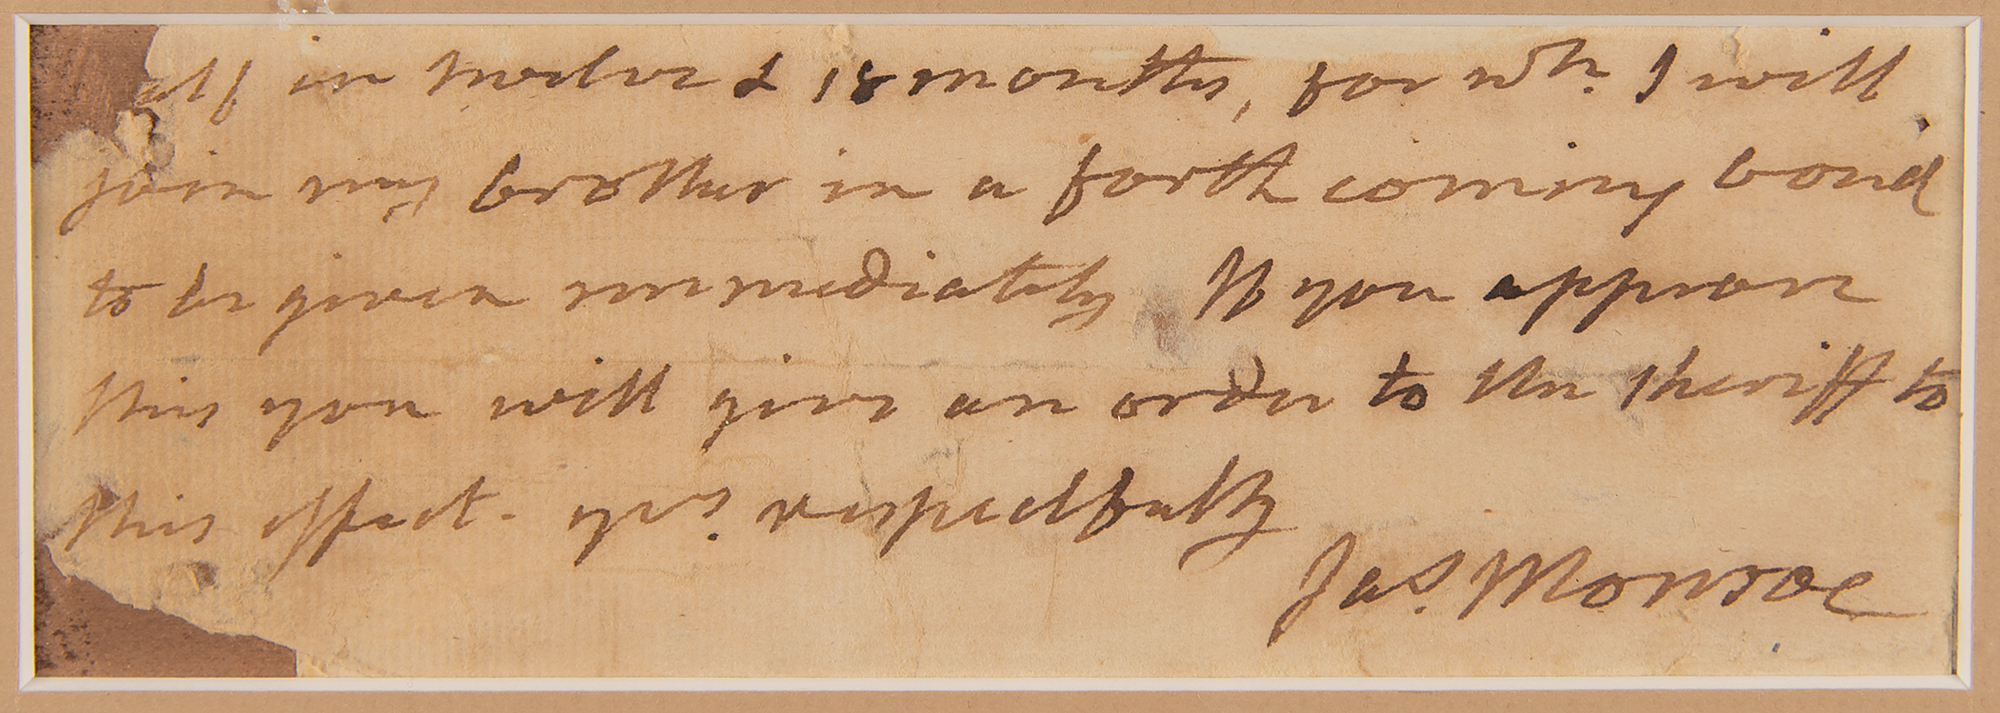 in twelve & 18 months, for wh. I will
join my brother in a forth coming bond
to be given immediately If you approve
this you will give an order to the sheriff to
this effect. yrs. respectfully
Jas. Monroe